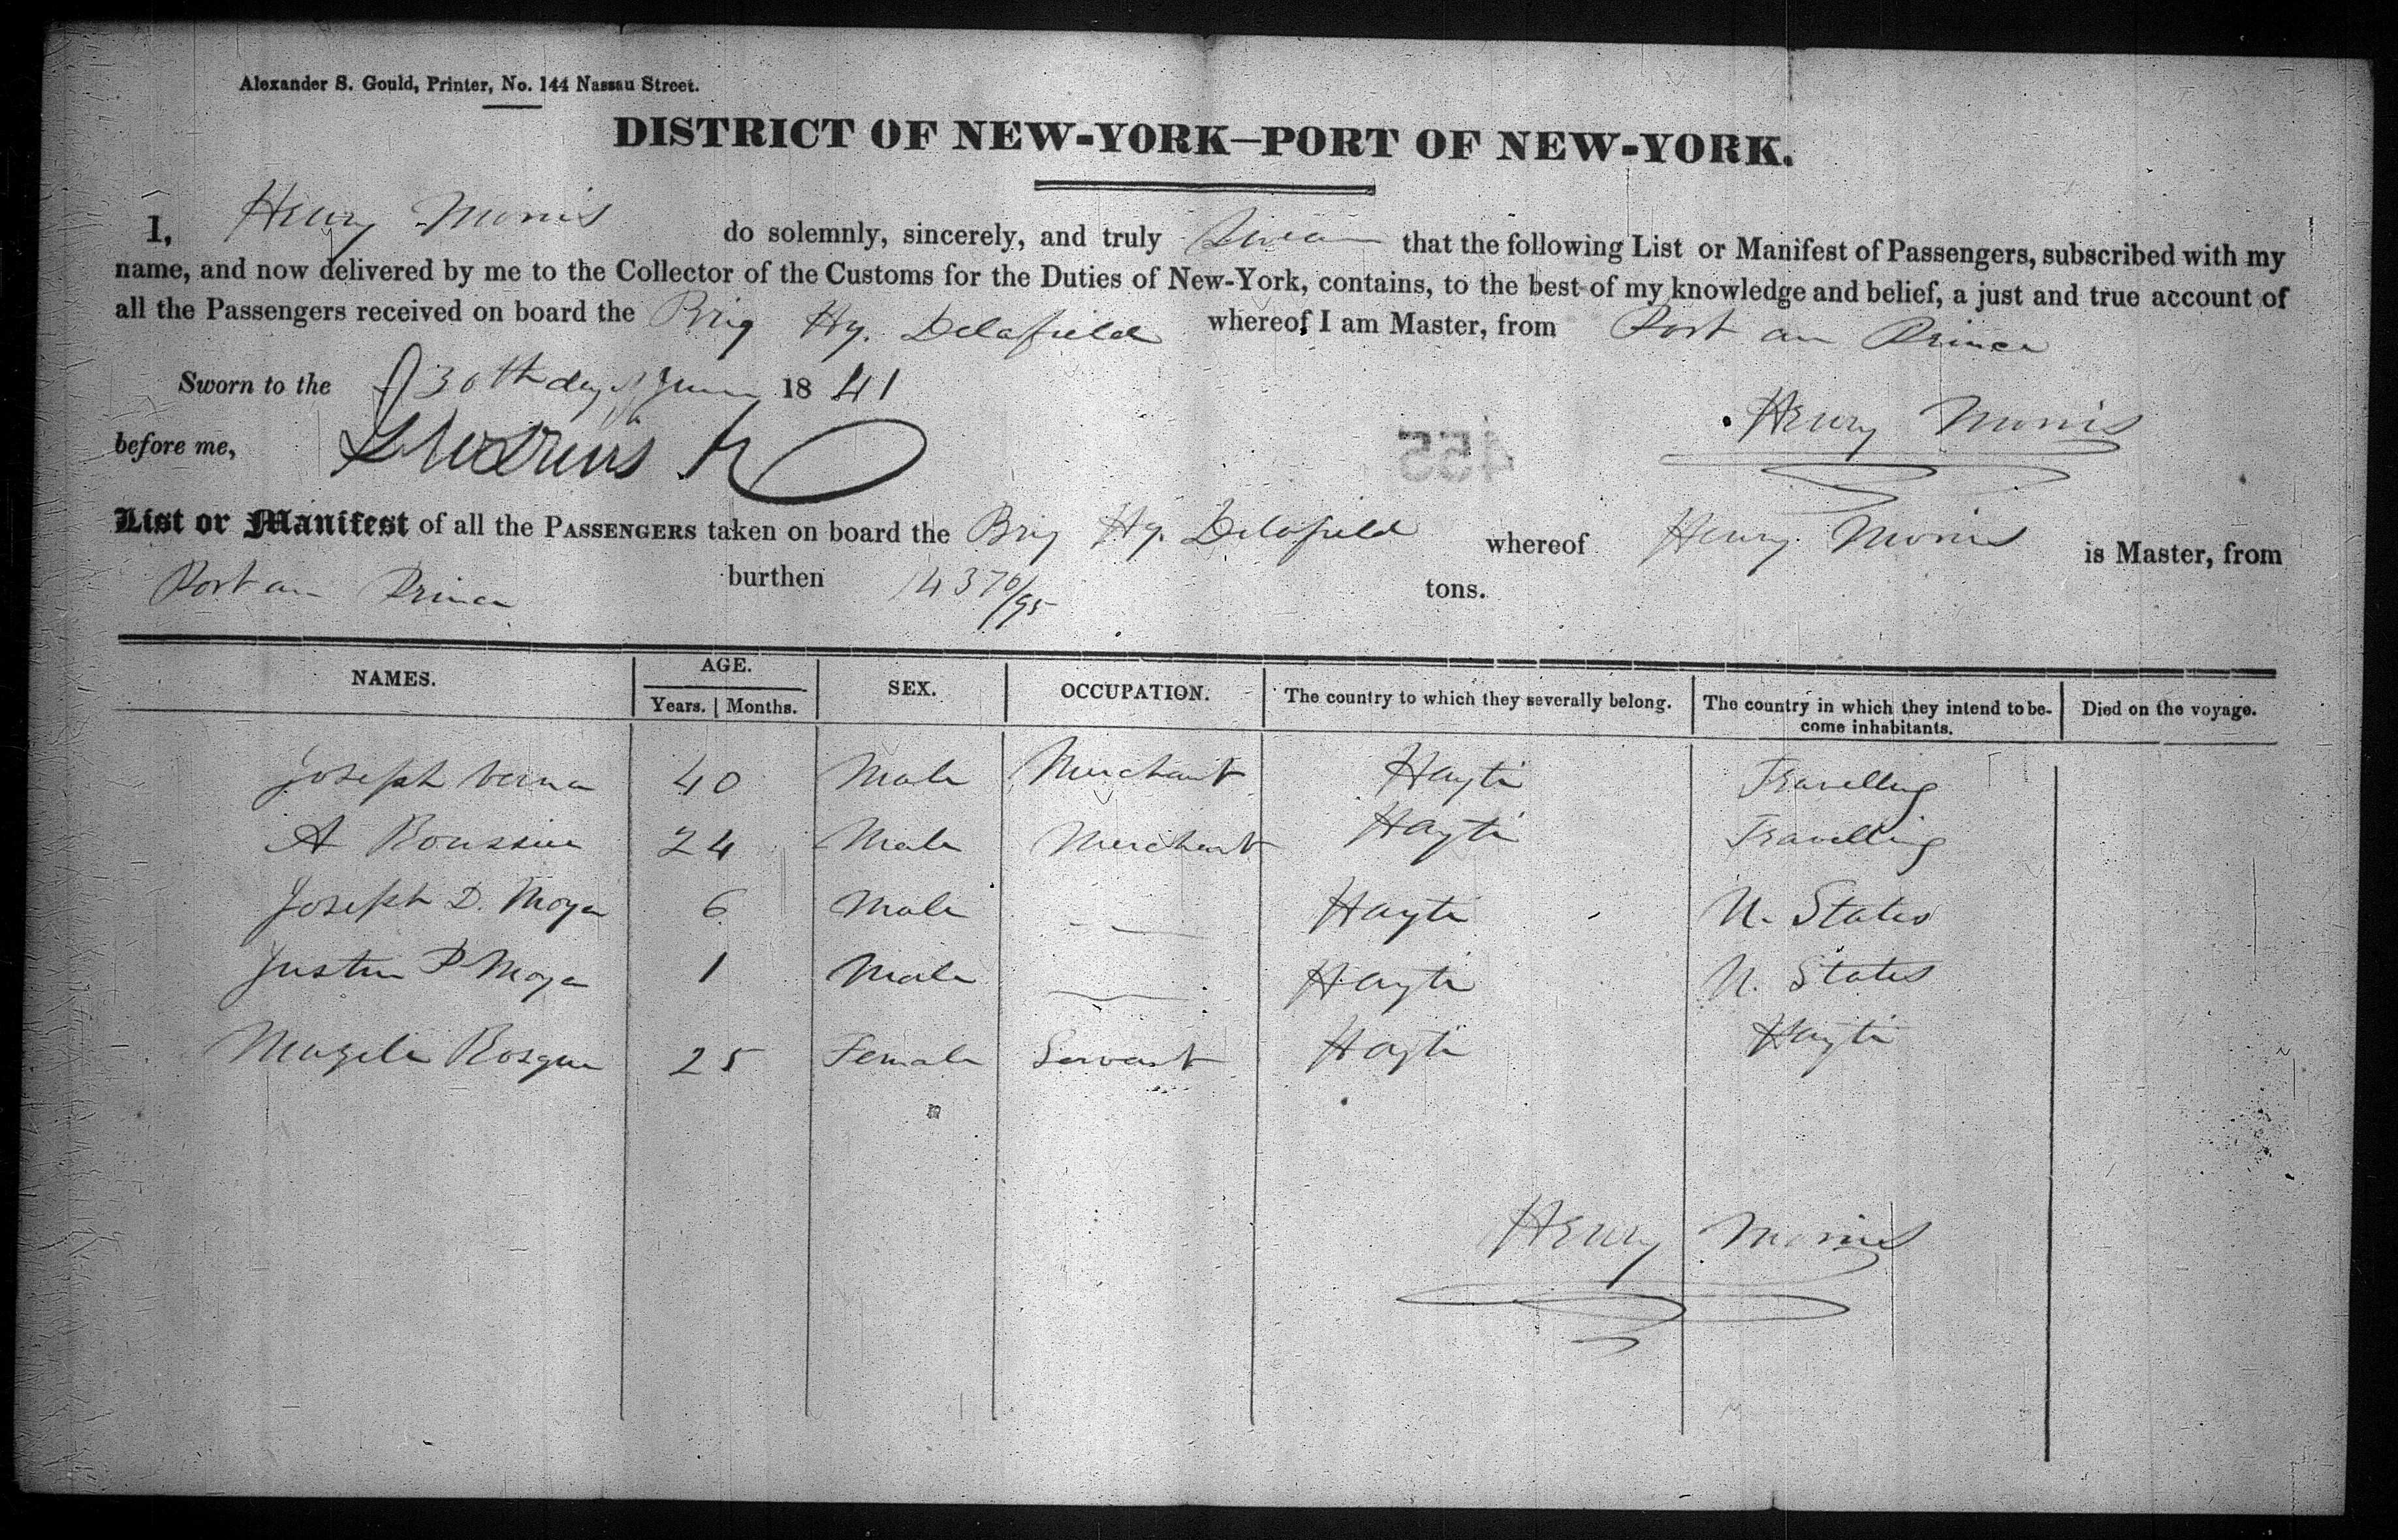 Alexander S. Gould, Printer, No. 144 Nassau Street.
DISTRICT OF NEW-YORK—PORT OF NEW-YORK.
I, Henry Morris do solemnly, sincerely, and truly Swear that the following List or Manifest of Passengers, subscribed with my
name, and now delivered by me to the Collector of the Customs for the Duties of New-York, contains, to the best of my knowledge and belief, a just and true account of
all the Passengers received on board the Brig Hy. Delafield whereof I am Master, from Port au Prince
Sworn to the 30th day of June 1841
before me,
Henry Morris
455
List or Manifest of all the PASSENGERS taken on board the Brig Hy. Delafield whereof Henry Morris is Master, from
Port au Prince burthen tons.
NAMES. AGE. SEX. OCCUPATION. The country to which they severally belong. The country in which they intend to be- Died on the voyage.
Years. Months. come inhabitants.
Joseph Verna 40 Male Merchant Hayti Travelling
A 24 Male Merchant Hayti Travelling
Joseph D. Moya 6 Male — Hayti U. States
Justin P Moya 1 Male — Hayti U. States
25 Female Servant Hayti Hayti
Henry Morris